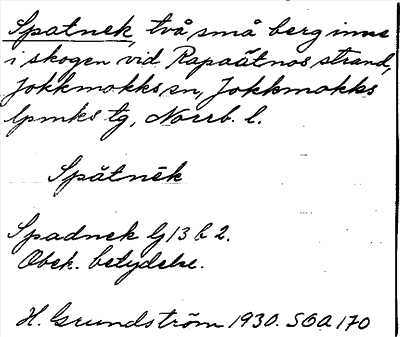 Spatnek, två små berg inne
i skogen vid Rapaätnos strand,
Jokkmokks sn, Jokkmokks
lpmks tg, Norrb. l.
Spătnēk
Spadnek lj 13 b 2.
Obek. betydelse.
H. Grundström 1930. SOA 170